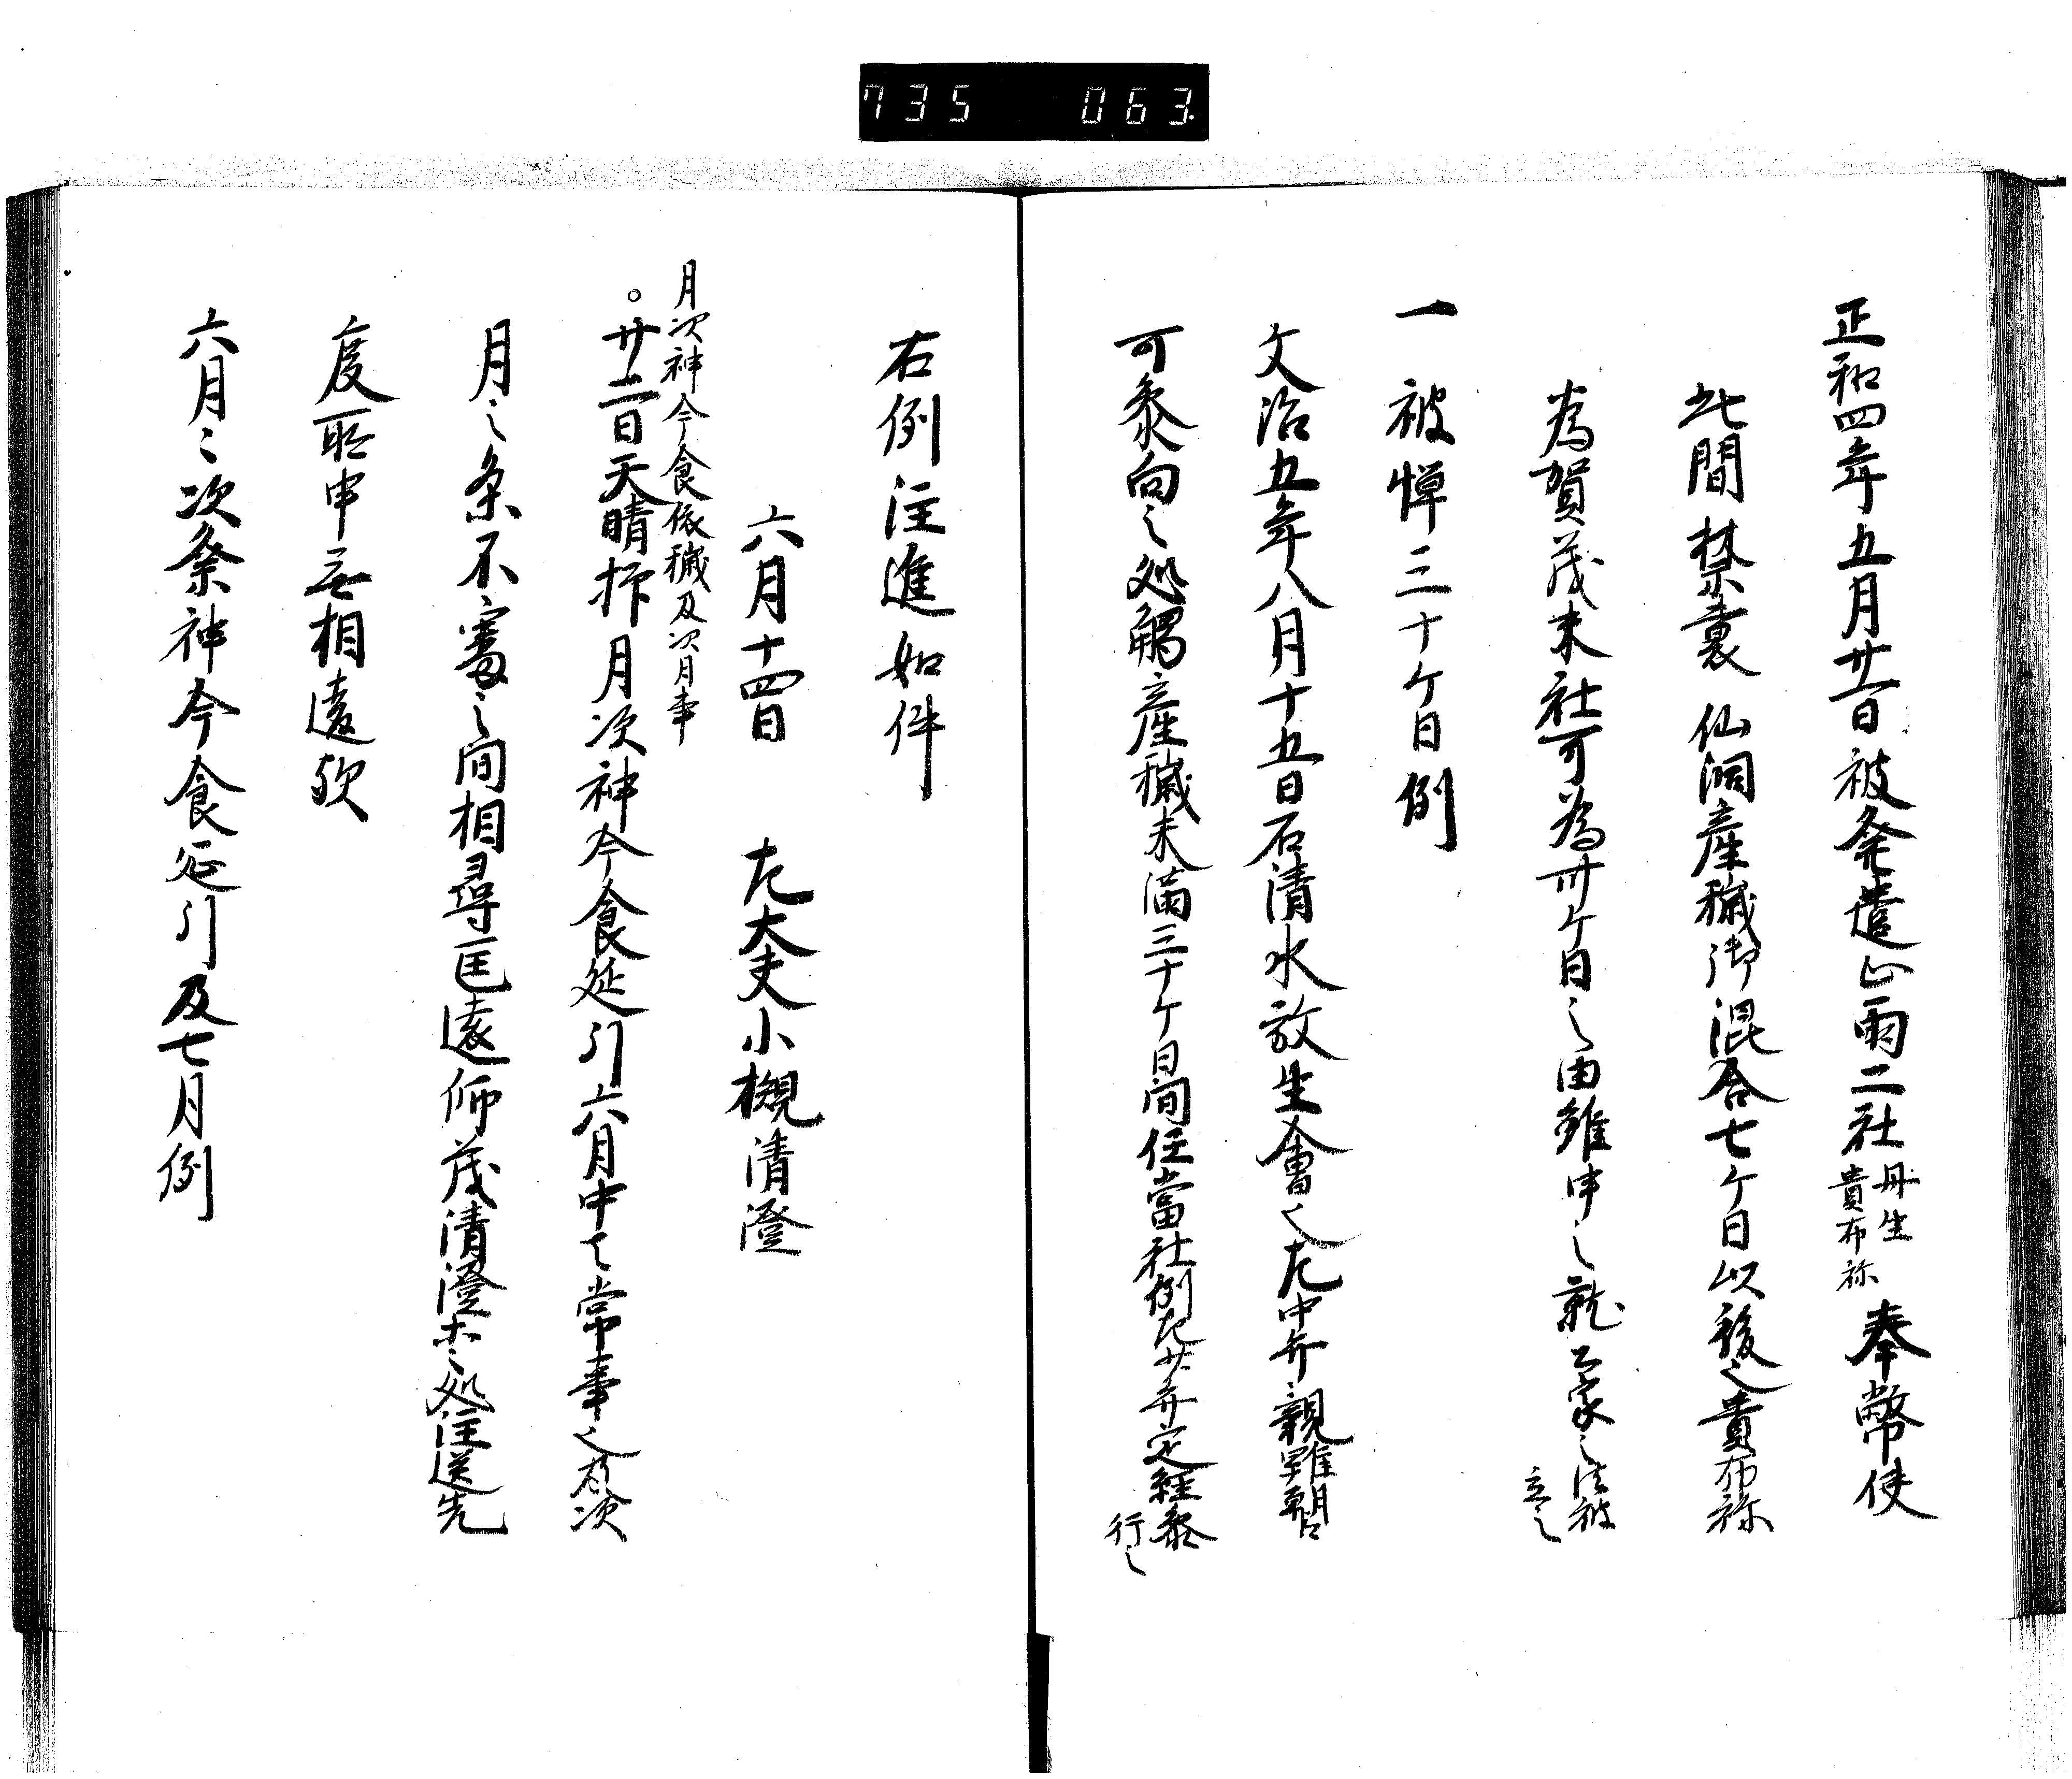 735 063
正和四年五月廿一日被発遣止雨二社丹生貴布祢奉幣使
此間禁裏仙洞産穢御混合七ケ日以後之貴布祢
為賀茂末社可為卅ケ日之由雖申之就公家之法被立之
一被憚三十ケ日例
文治五年八月十五日石清水放生會々左中弁親雖朝臣
可参向之処觸産穢未満三十ケ日間任當社例右少弁定経参行之
右例注進如件
六月十四日 左大史小槻清澄
月次神今食依穢及次月事
○廿二日天晴抑月次神今食延引六月中之常事之及次
月之条不審之間相尋匡遠師茂清澄等之処注送先
度所申無相違歟
六月々次祭神今食延引及七月例